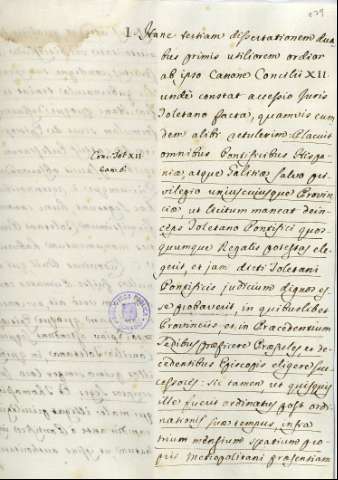 I. Hanc tertiam dissertationem dua
bus primis utiliorem ordior
ab ipso Canone Concilii XII.
unde constat accessio Juris
Toletano facta, quamvis eum
dem alibi actulerim. Placuit
Conc. Tol. XII
Can. 6.
omnibus Pontificibus Hispa
niæ, atque Galitiæ, salvo pri
vilegio uniuscuiusque Provin
ciæ, ut licitum maneat dein
ceps Toletano Pontifici quos
quumque Regalis potestas ele
gerit, et jam dicti Toletani
Pontificis judicium dignos es
se probaverit, in quibuslibet
Provinciis, et in Præcedentium
Sedibus præficere Præsules, et de
cedentibus Episcopis eligere suc
cessores: sic tamen ut quisquis
ille fuerit ordinatus post ordi
nationis suæ tempus, infra
trium mensium spatium pro
prii Metropolitani præsentiam